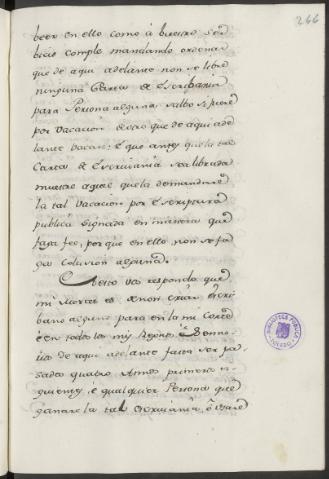 266
beer en ello como à buestro ser
bicio comple mandando ordenar
que de aqui adelante non se libre
ninguna Carta de Escribania
para Persona alguna, salbo si fuere
por vacacion de oy que de aqui ade
lante vacare: è que antes que la tal
Carta de Escrivania sea librada
muestre aquel que la demandare
la tal vacacion por escriptura
publica signada en manera que
faga fee, por que en ello non se fa
ga colusion alguna.
A esto vos respondo que
mi merced es de non criar Escri
bano alguno para en la mi Corte
è en todos los mis Reynos
de aqui adelante fasta ser pa
sados quatro Años primeros si
guientes, è qualquier Persona que
ganare la tal Escrivania, ò usare
BIBLIOTECA PUBLICA
TOLEDO